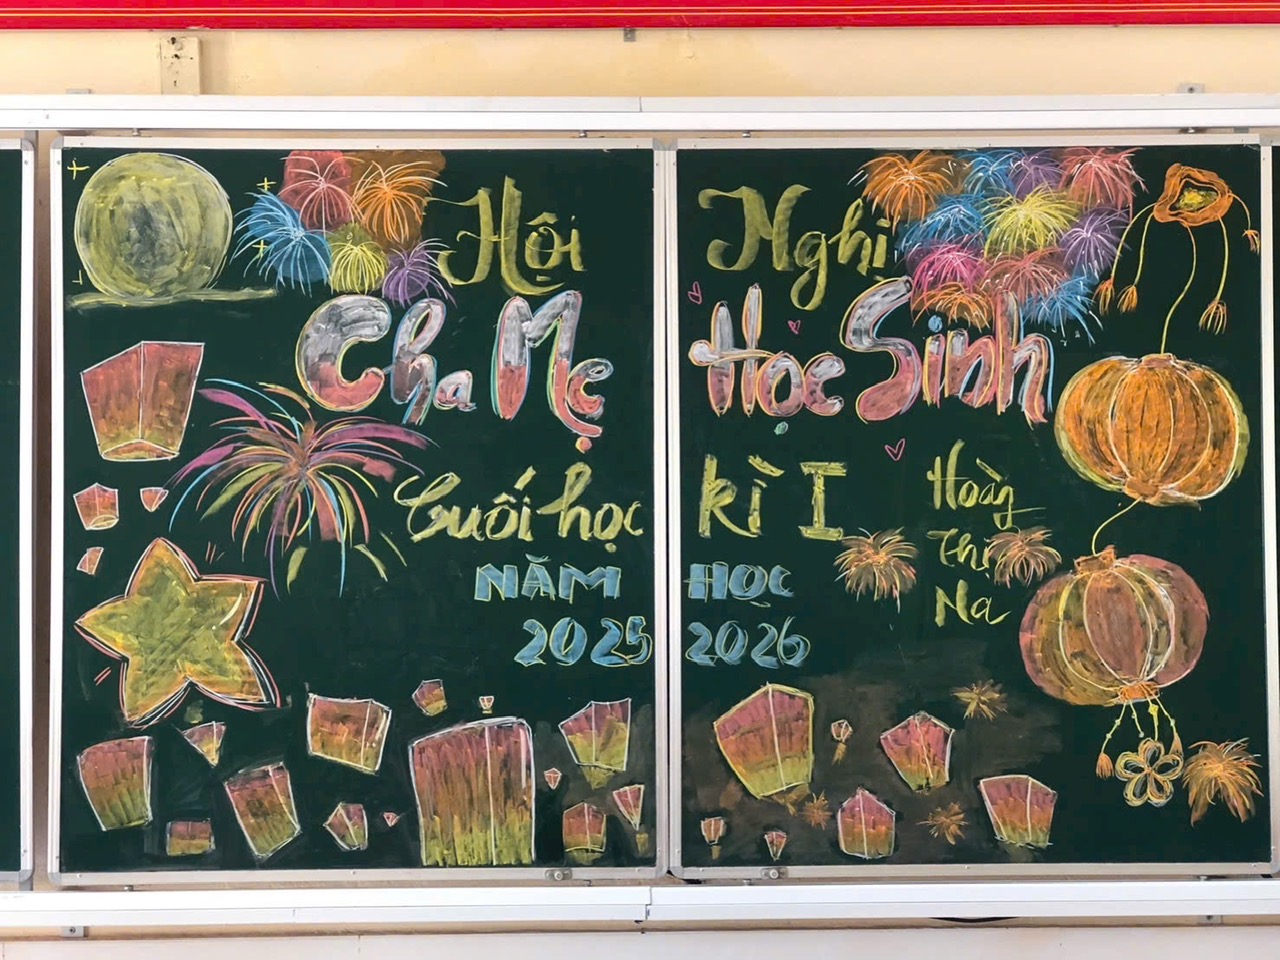 Hội Nghị
Cha Mẹ Học Sinh
Cuối học kì I
NĂM HỌC
2025 2026
Hoàng
Thị
Na